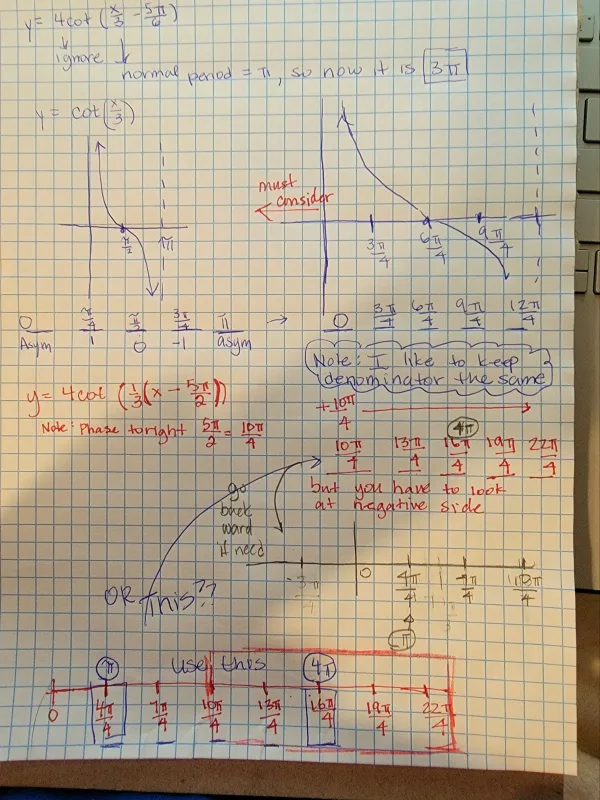 y = 4cot (x/3 - 5π/6)
ignore
normal period = π, so now it is 3π
y = cot(x/3)
must consider
π/2 π
3π/4 6π/4 9π/4
0 π/4 π/2 3π/4 π → 0 3π/4 6π/4 9π/4 12π/4
Asym 1 0 -1 asym
Note: I like to keep
denominator the same
y = 4cot (1/3(x - 5π/2))
Note: Phase to right 5π/2 = 10π/4
+10π/4
4π
10π/4 13π/4 16π/4 19π/4 22π/4
but you have to look
at negative side
go
back
ward
if need
0 4π/4
π
OR this??
use this
π 4π
0 4π/4 7π/4 10π/4 13π/4 16π/4 19π/4 22π/4